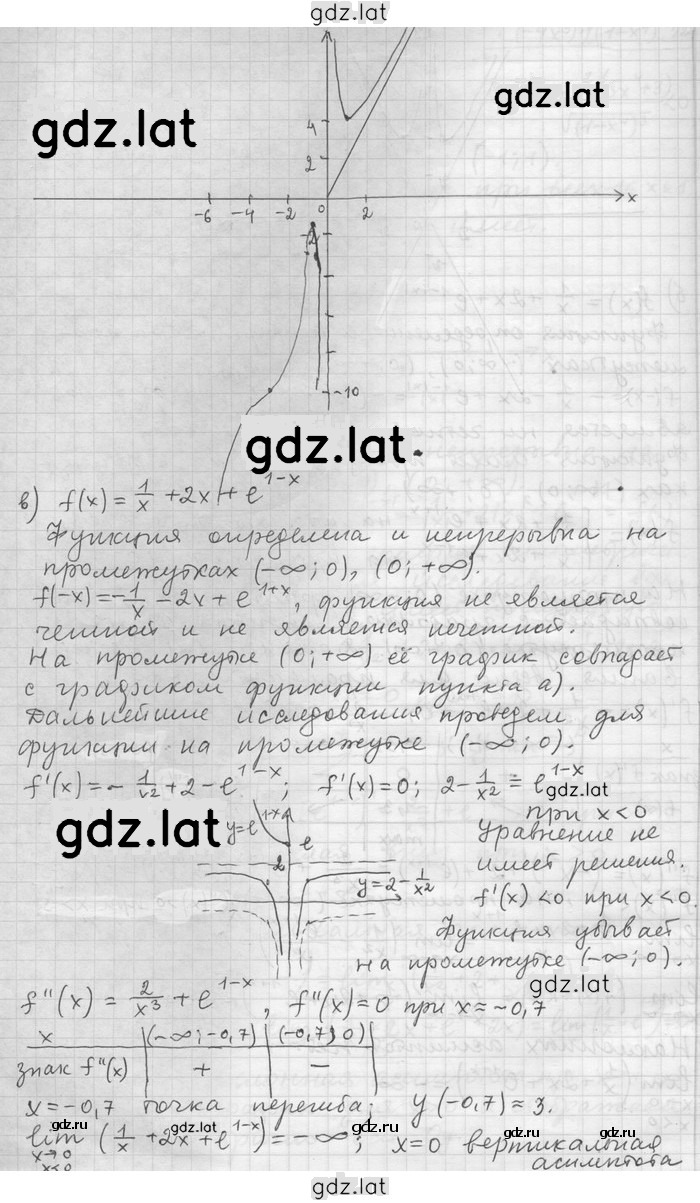 gdz.lat
gdz.lat
gdz.lat
4
2
-6 -4 -2 0 2 x
-2
-10
gdz.lat
в) f(x) = 1/x + 2x + e^(1-x)
Функция определена и непрерывна на
промежутках (-∞; 0), (0; +∞).
f(-x) = -1/x - 2x + e^(1+x), функция не является
четной и не является нечетной.
На промежутке (0; +∞) её график совпадает
с графиком функции пункта а).
Дальнейшие исследования проведем для
функции на промежутке (-∞; 0).
f'(x) = -1/x² + 2 - e^(1-x); f'(x) = 0; 2 - 1/x² = e^(1-x)
gdz.lat
при x < 0
gdz.lat
y = e^(1-x)
e
2
y = 2 - 1/x²
Уравнение не
имеет решения.
f'(x) < 0 при x < 0.
Функция убывает
на промежутке (-∞; 0).
gdz.lat
f''(x) = 2/x³ + e^(1-x), f''(x) = 0 при x ≈ -0,7
x (-∞; -0,7) (-0,7; 0)
знак f''(x) + -
x = -0,7 точка перегиба; y(-0,7) ≈ 3.
lim (1/x + 2x + e^(1-x)) = -∞; x = 0 вертикальная
x→0
x<0
асимптота
gdz.lat
gdz.lat
gdz.lat
gdz.lat